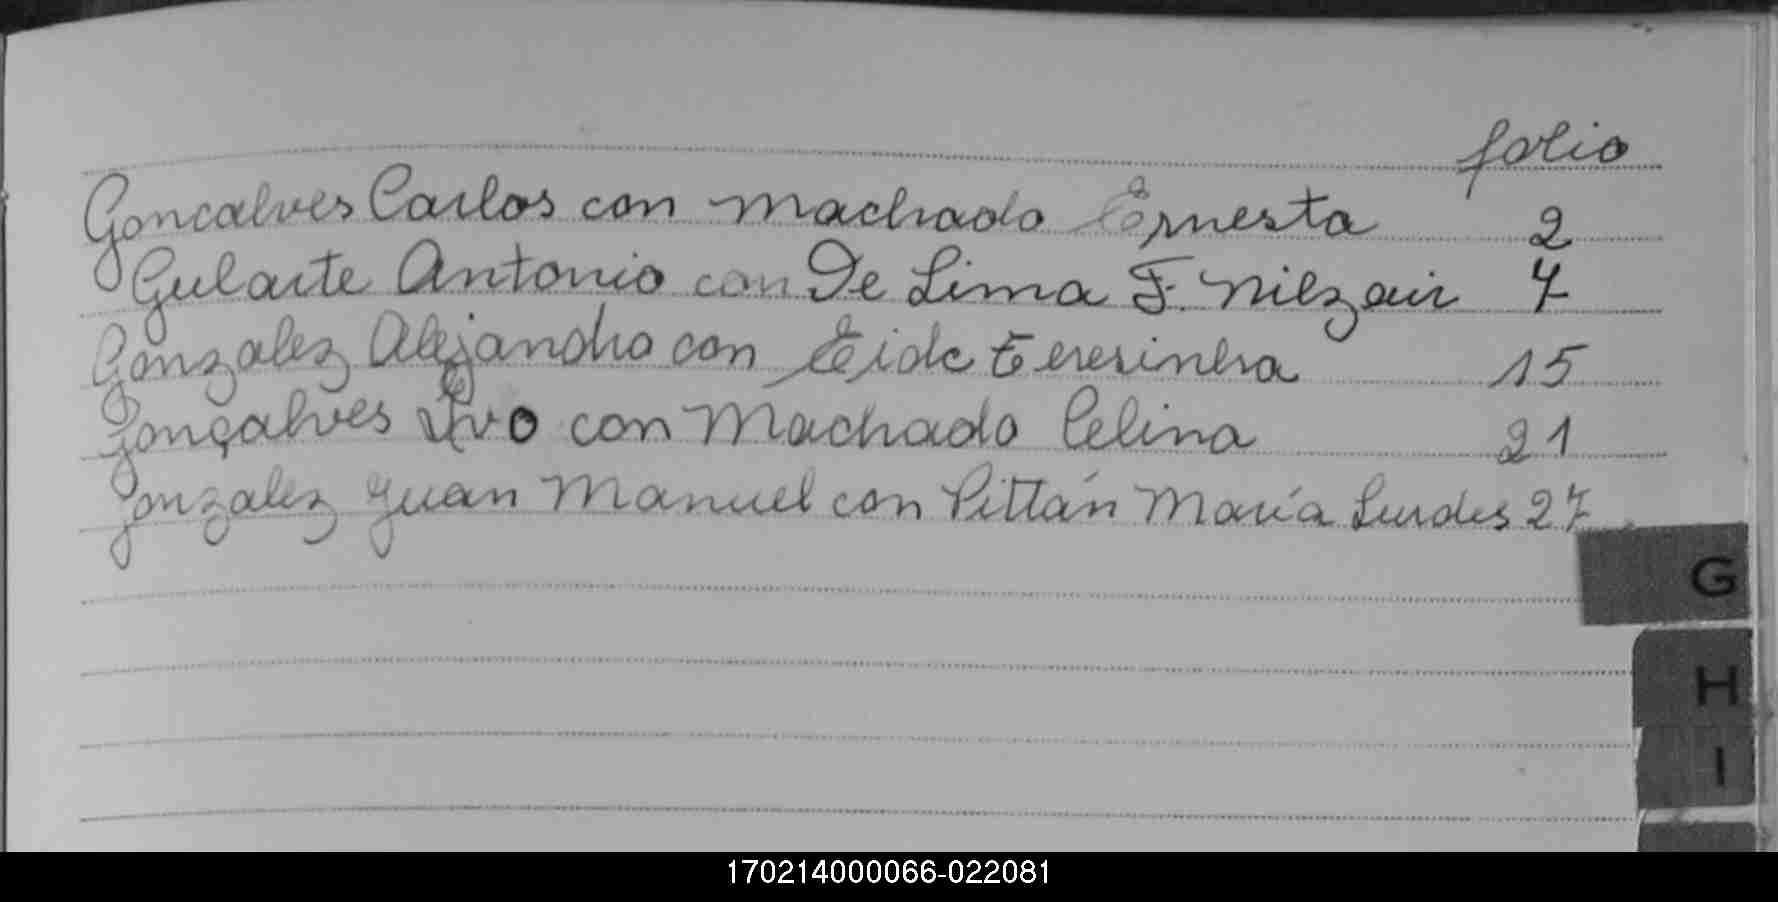 folio
Goncalves Carlos con Machado Ernesta 2
Gularte Antonio con De Lima F. Nilzair 7
Gonzalez Alejandro con Eide Teresinha 15
Gonçalves Ivo con Machado Celina 21
Gonzalez Juan Manuel con Pittán María Lurdes 27
G
H
I
170214000066-022081